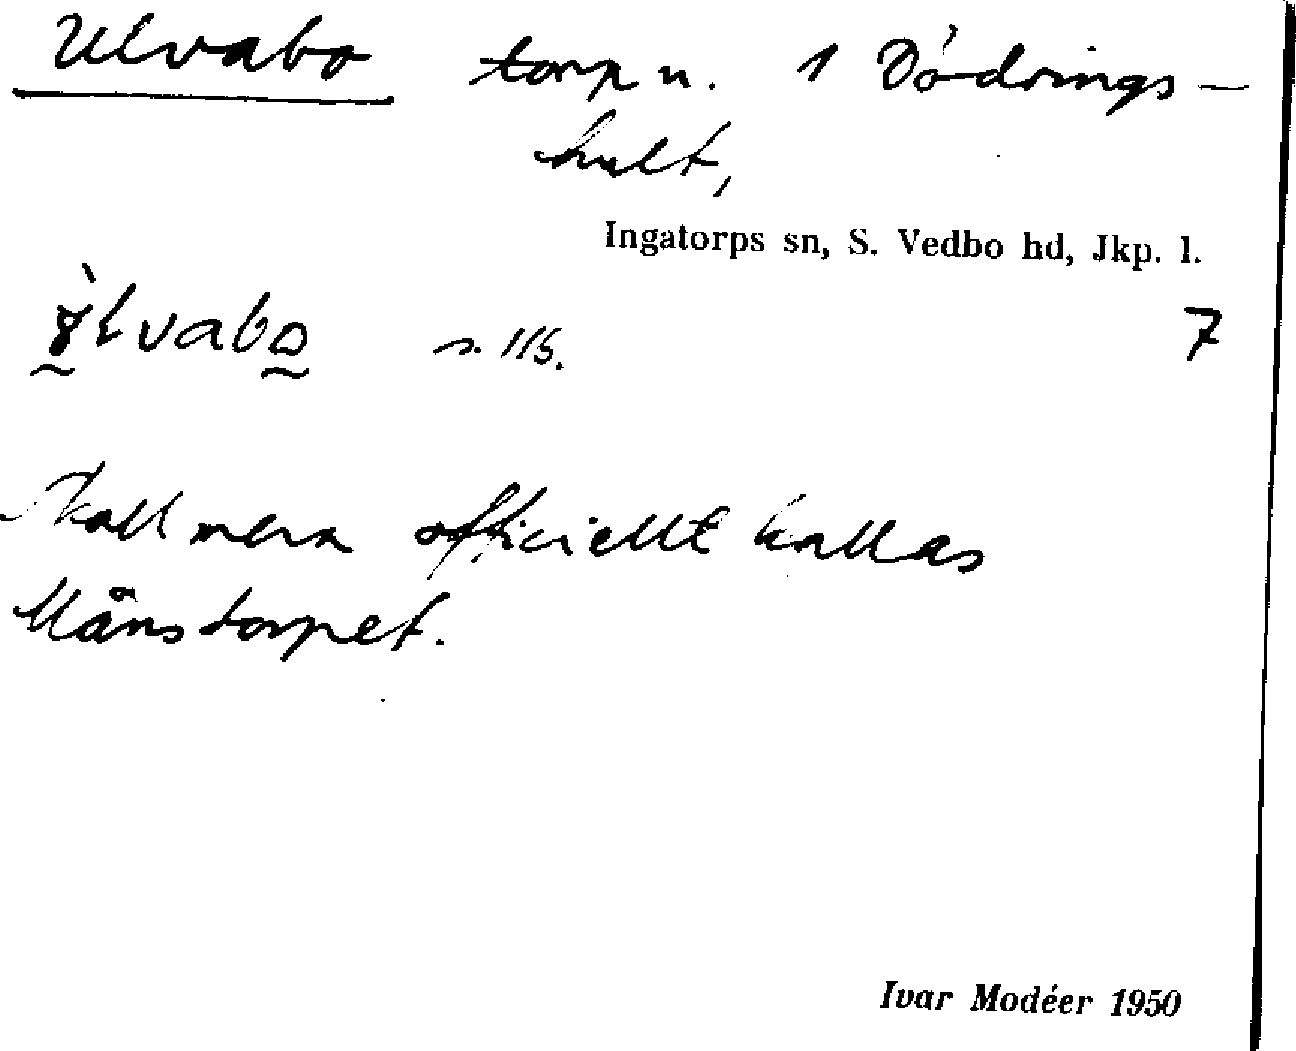 Ulvabo torp u. 1 Dödrings-
hult,
Ingatorps sn, S. Vedbo hd, Jkp. l.
7
s. 115.
Skall mera officiellt kallas
Månstorpet.
Ivar Modéer 1950